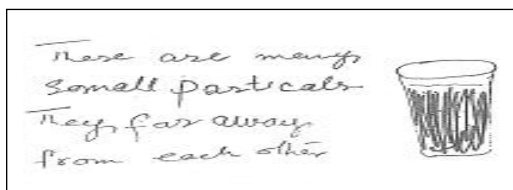 These are many
somall particals
They far away
from each other